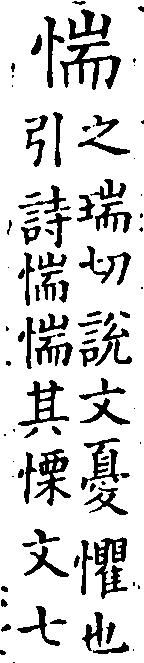 惴
之瑞切說文憂懼也
引詩惴惴其慄文七